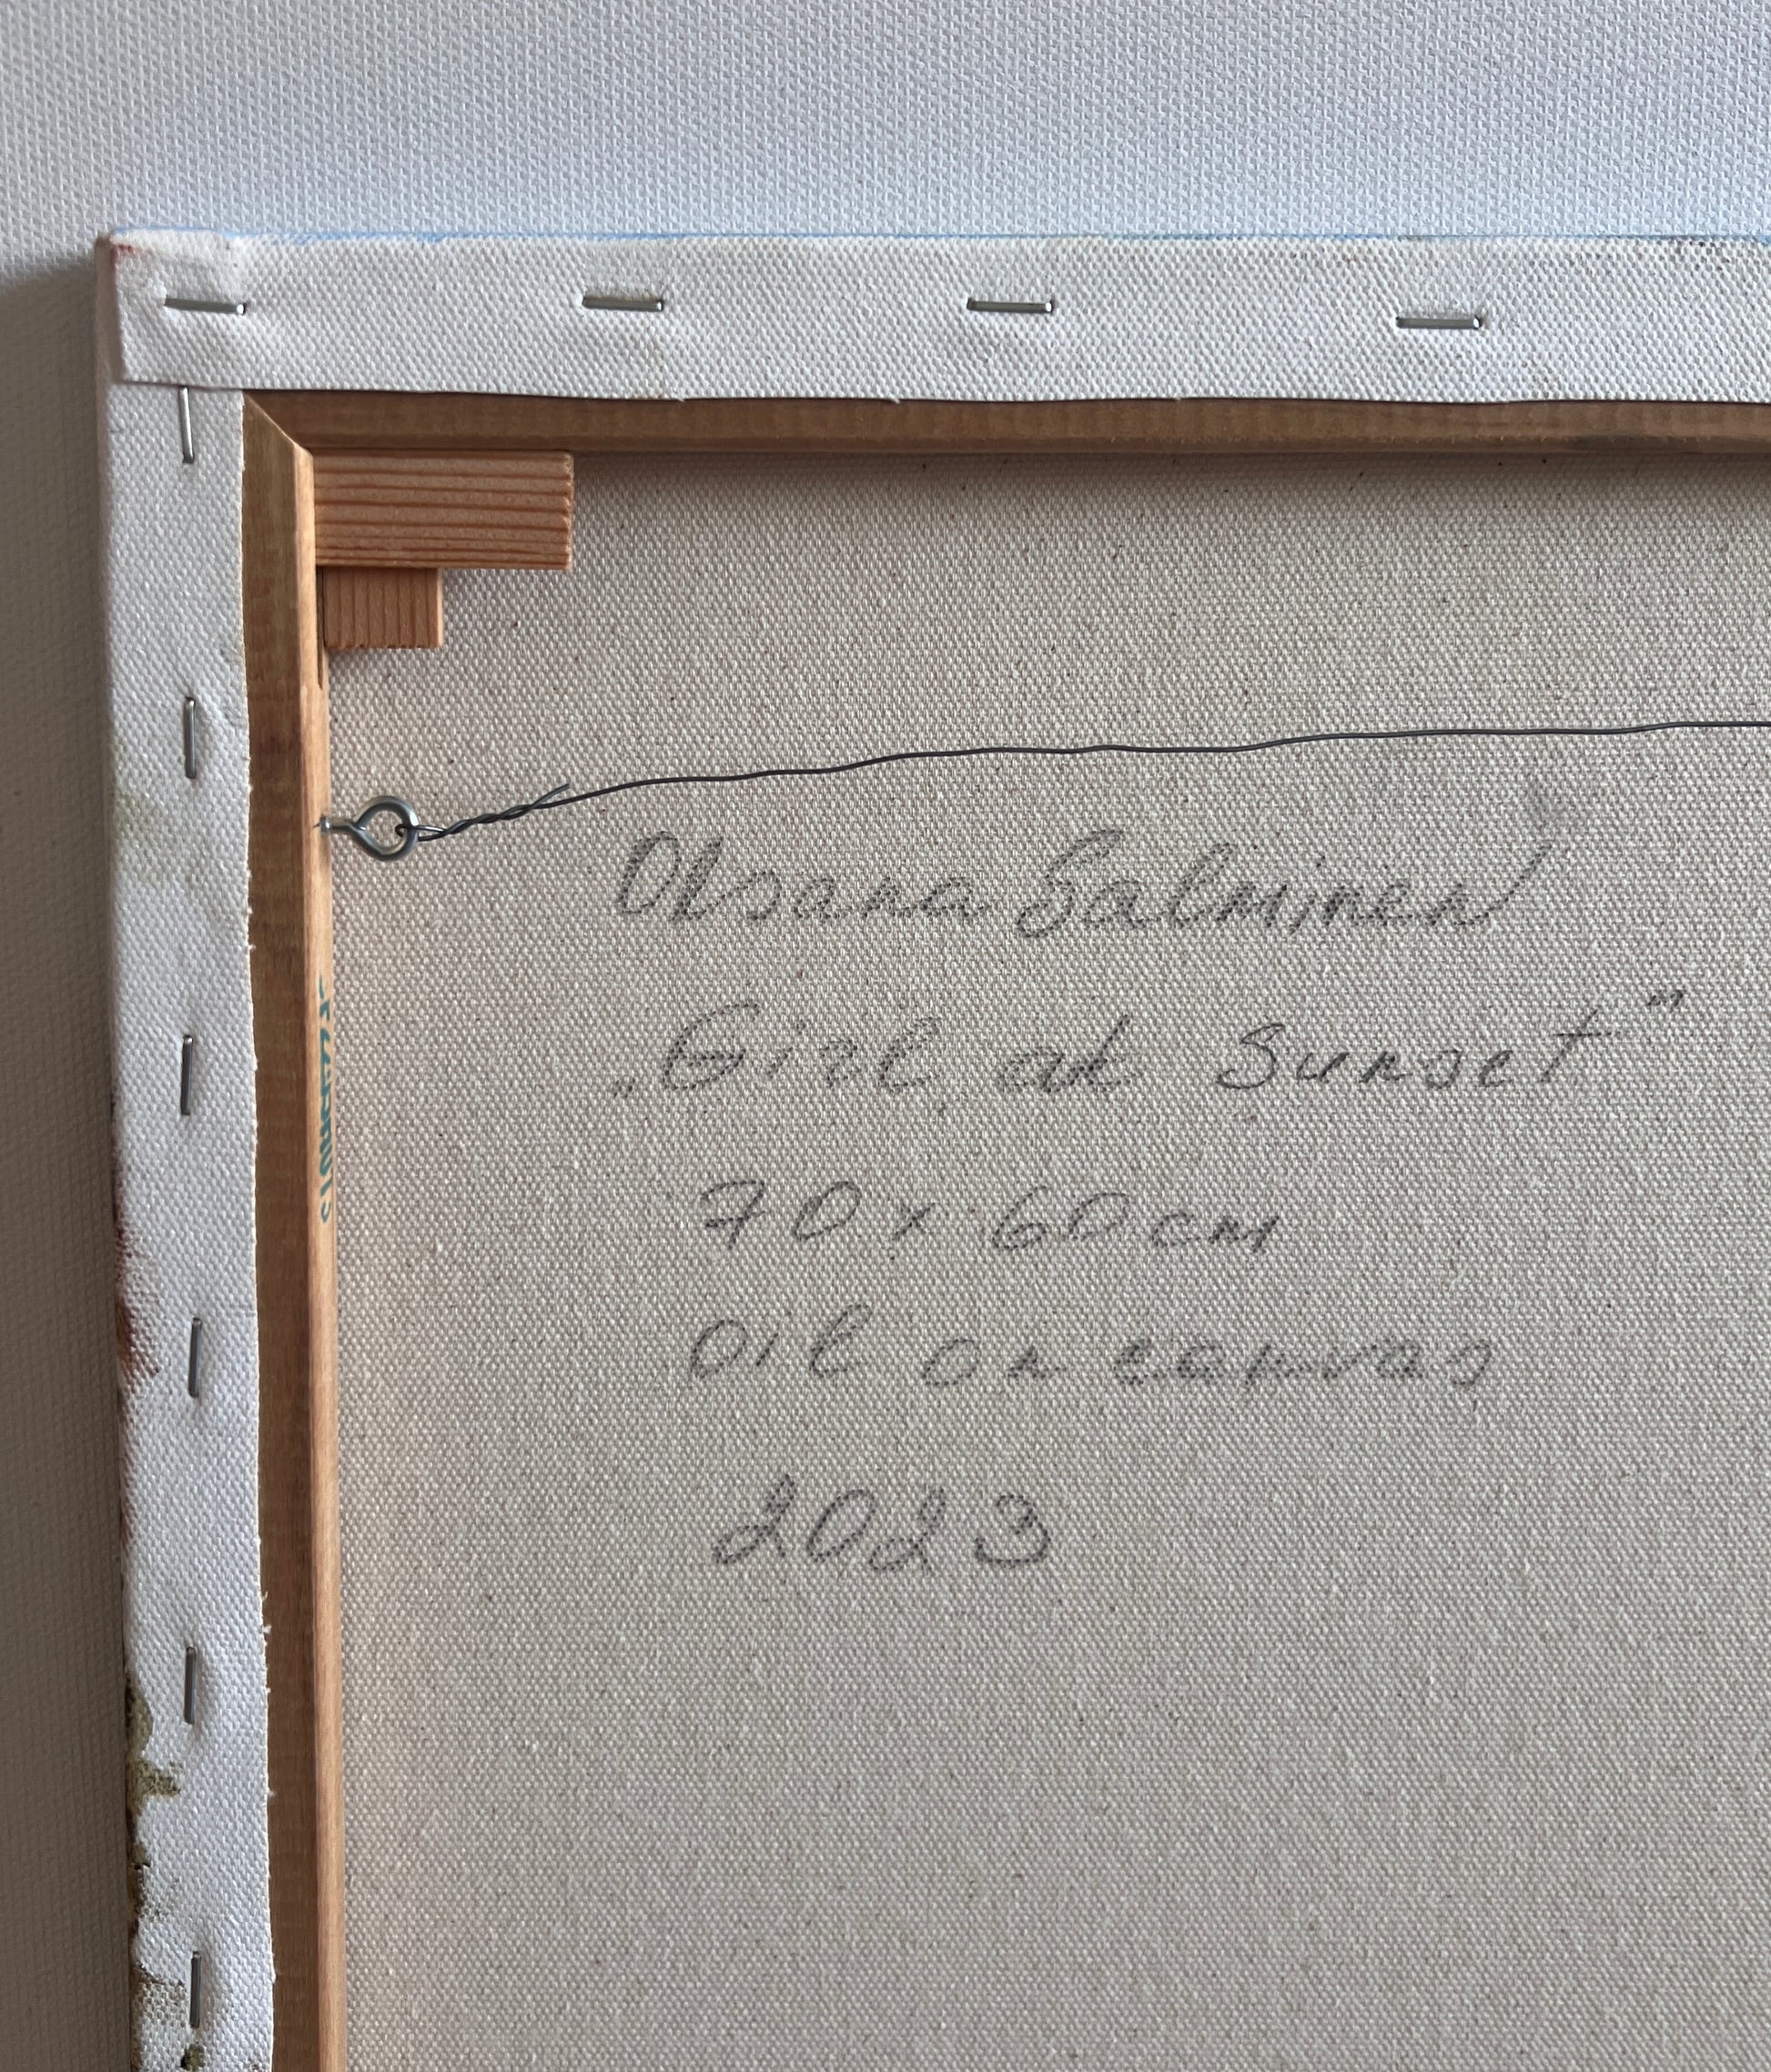 Oksana Salminen
„Girl at Sunset”
70 x 60 cm
oil on canvas
2023